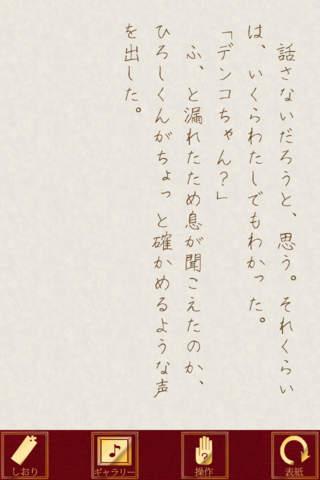 話さないだろうと、思う。それくらい
は、いくらわたしでもわかった。
「デンコちゃん？」
ふ、と漏れたため息が聞こえたのか、
ひろしくんがちょっと確かめるような声
を出した。
しおり
ギャラリー
操作
表紙